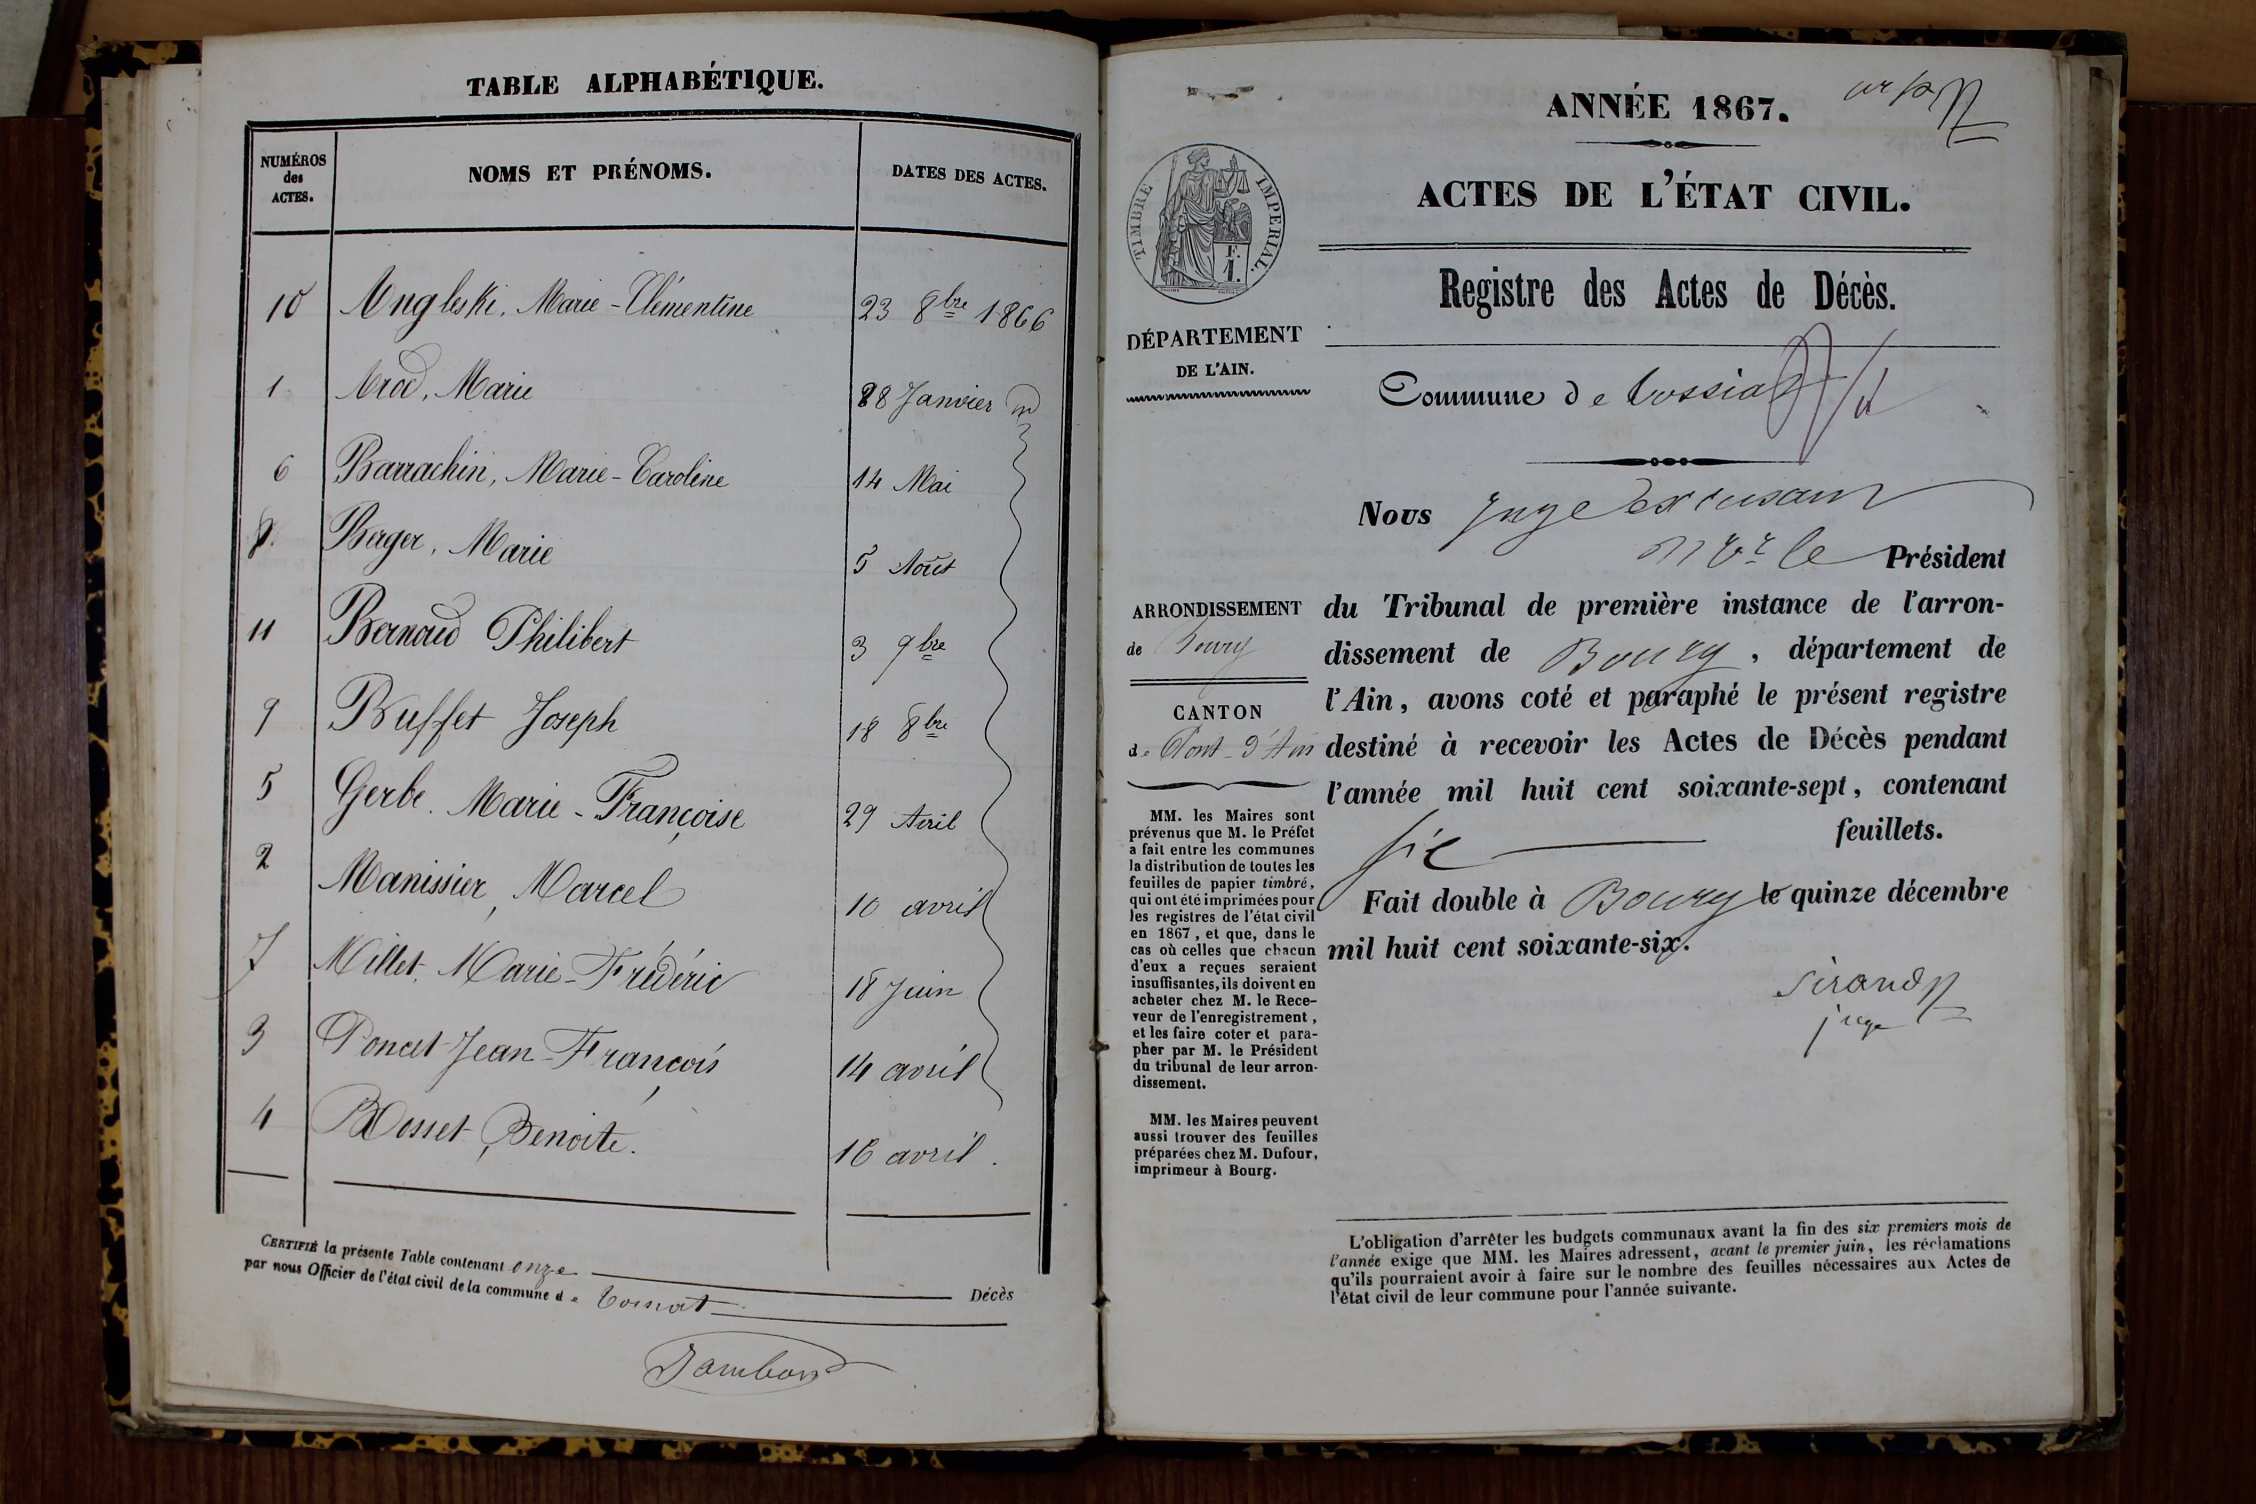 TABLE ALPHABÉTIQUE.
NUMÉROS
des
ACTES.
NOMS ET PRÉNOMS.
DATES DES ACTES.
10 Angleski, Marie-Clémentine 23 8bre 1866
1 Arod, Marie 28 Janvier id
6 Barrachin, Marie-Caroline 14 Mai
8. Berger, Marie 5 Août
11 Bernard Philibert 3 9bre
9 Buffet Joseph 18 8bre
5 Gerbe. Marie-Françoise 29 Avril
2 Manissier, Marcel 10 avril
7 Millet, Marie-Frédéric 18 Juin
3 Poncet Jean-François 14 avril
4 Rosset, Benoite. 16 avril.
CERTIFIÉ la présente Table contenant onze Décès
par nous Officier de l'état civil de la commune de Tossiat
Jambon
ANNÉE 1867.
ACTES DE L'ÉTAT CIVIL.
TIMBRE IMPÉRIAL.
F.
1.
Registre des Actes de Décès.
DÉPARTEMENT
DE L'AIN.
Commune de Tossiat
Nous Juge
Mr le Président
ARRONDISSEMENT
de Bourg
CANTON
de Pont-d'Ain
du Tribunal de première instance de l'arron-
dissement de Bourg, département de
l'Ain, avons coté et paraphé le présent registre
destiné à recevoir les Actes de Décès pendant
l'année mil huit cent soixante-sept, contenant
six feuillets.
Fait double à Bourg le quinze décembre
mil huit cent soixante-six.
Sirand
juge
MM. les Maires sont
prévenus que M. le Préfet
a fait entre les communes
la distribution de toutes les
feuilles de papier timbré,
qui ont été imprimées pour
les registres de l'état civil
en 1867, et que, dans le
cas où celles que chacun
d'eux a reçues seraient
insuffisantes, ils doivent en
acheter chez M. le Rece-
veur de l'enregistrement,
et les faire coter et para-
pher par M. le Président
du tribunal de leur arron-
dissement.
MM. les Maires peuvent
aussi trouver des feuilles
préparées chez M. Dufour,
imprimeur à Bourg.
L'obligation d'arrêter les budgets communaux avant la fin des six premiers mois de
l'année exige que MM. les Maires adressent, avant le premier juin, les réclamations
qu'ils pourraient avoir à faire sur le nombre des feuilles nécessaires aux Actes de
l'état civil de leur commune pour l'année suivante.